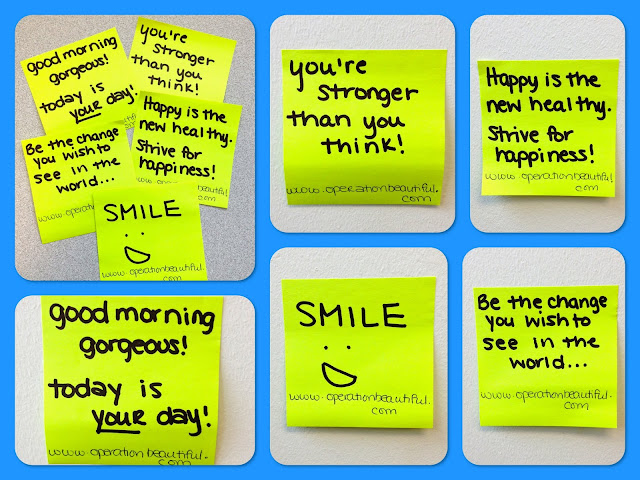 good morning
gorgeous!
today is
YOUR day!
you're
Stronger
than you
think!
Happy is the
new healthy.
Strive for
happiness!
www.operationbeautiful.
com
Be the change
you wish to
see in the
world...
www.operationbeautiful.
SMILE
www.operationbeautiful.
com
you're
Stronger
than you
think!
www.operationbeautiful.
com
Happy is the
new healthy.
Strive for
happiness!
www.operationbeautiful.
com
good morning
gorgeous!
today is
YOUR day!
www.operationbeautiful.
com
SMILE
www.operationbeautiful.
com
Be the change
you wish to
see in the
world...
www.operationbeautiful.
com